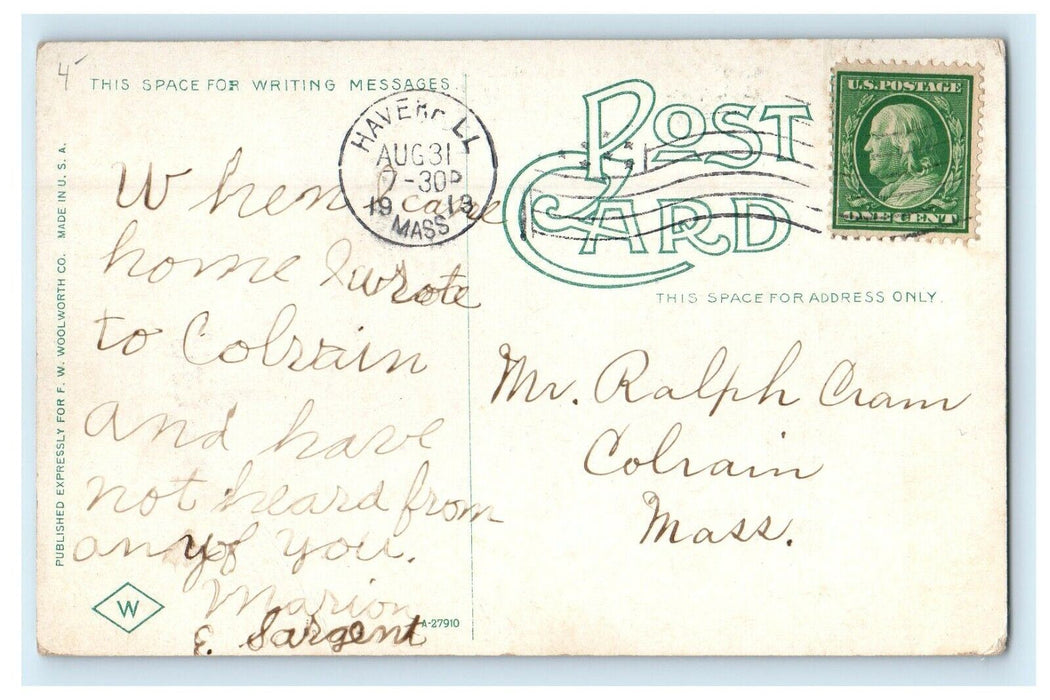 4
THIS SPACE FOR WRITING MESSAGES.
POST
CARD
THIS SPACE FOR ADDRESS ONLY.
U.S. POSTAGE
ONE CENT
HAVERHILL
AUG 31
7-30P
1913
MASS
When I came
home I wrote
to Colrain
and have
not heard from
any of you.
Marion
E. Sargent
Mr. Ralph Cram
Colrain
Mass.
PUBLISHED EXPRESSLY FOR F. W. WOOLWORTH CO. MADE IN U. S. A.
W
A-27910